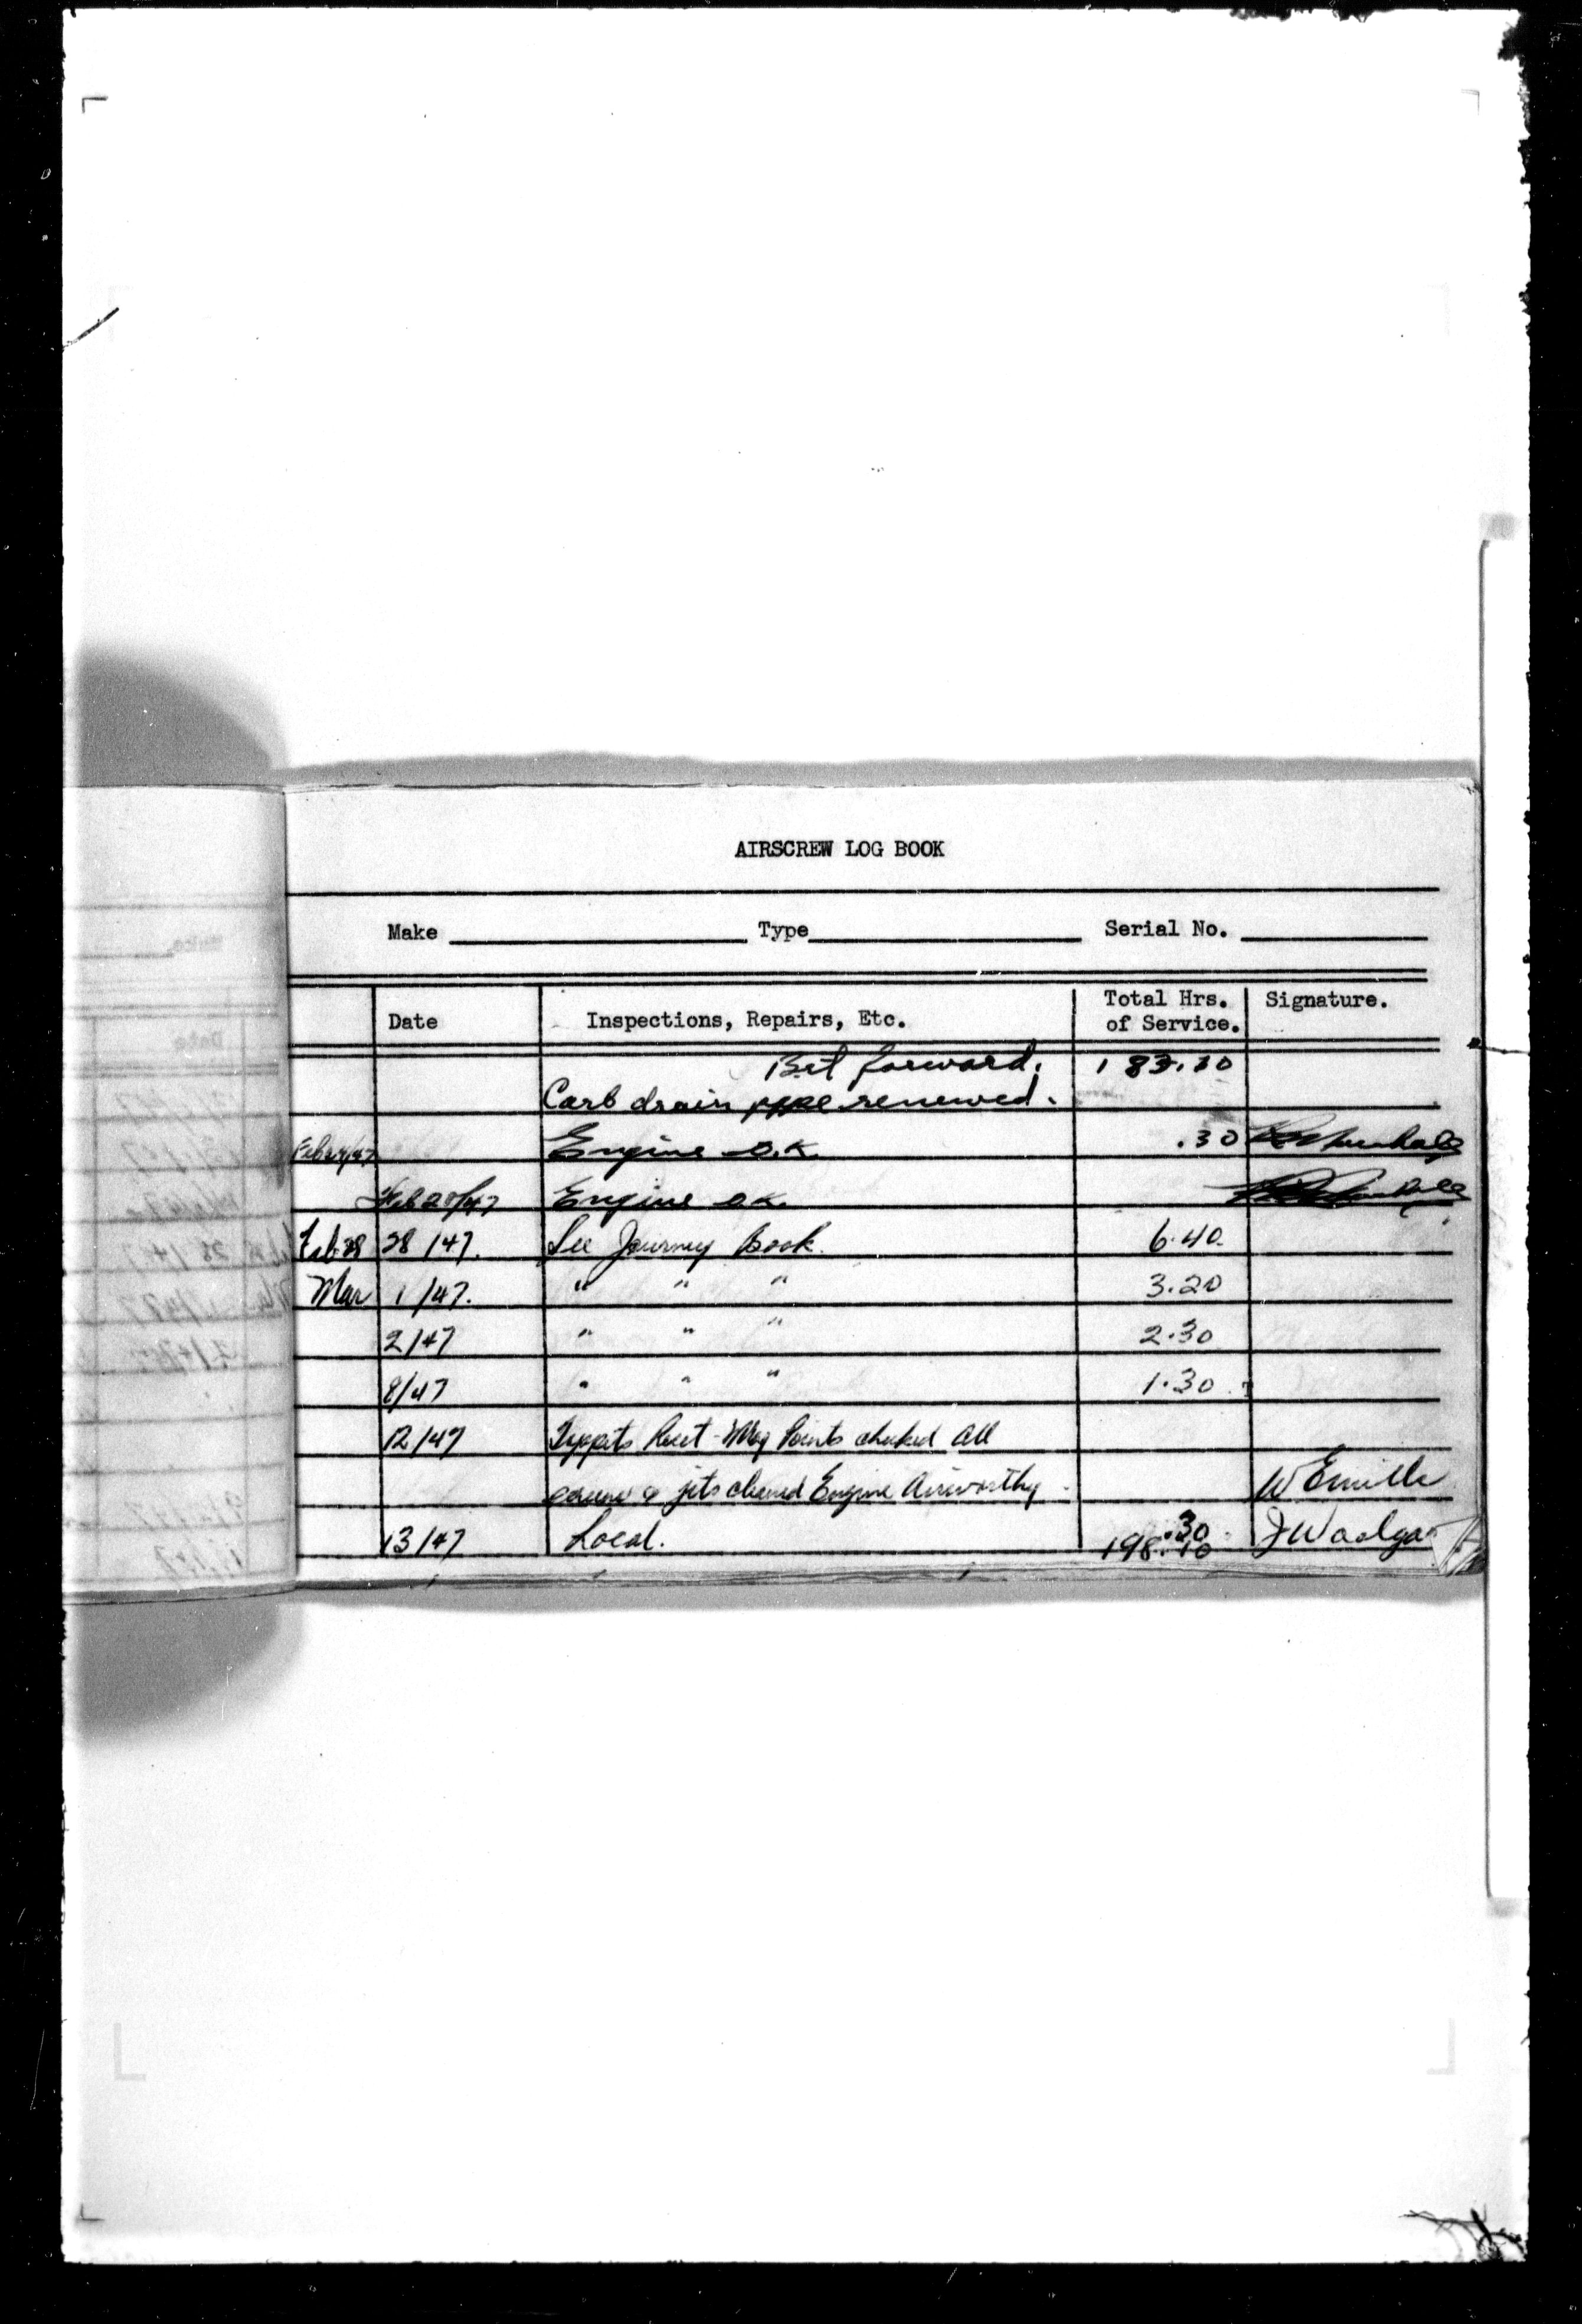 AIRSCREW LOG BOOK
Make Type Serial No.
Date Inspections, Repairs, Etc. Total Hrs. of Service. Signature.
Bet forward. 183.10
Carb drain pipe renewed.
Engine O.K. .30
Feb 28/47 Engine O.K.
Feb 28 28/47. See Journey Book. 6.40.
Mar 1/47. " " " 3.20
2/47 " " " 2.30
8/47 " " " 1.30
12/47 Tappets Reset - Mag Points checked all
& jets cleaned Engine Airworthy -
13/47 Local. .30
198.10 J Woolgar